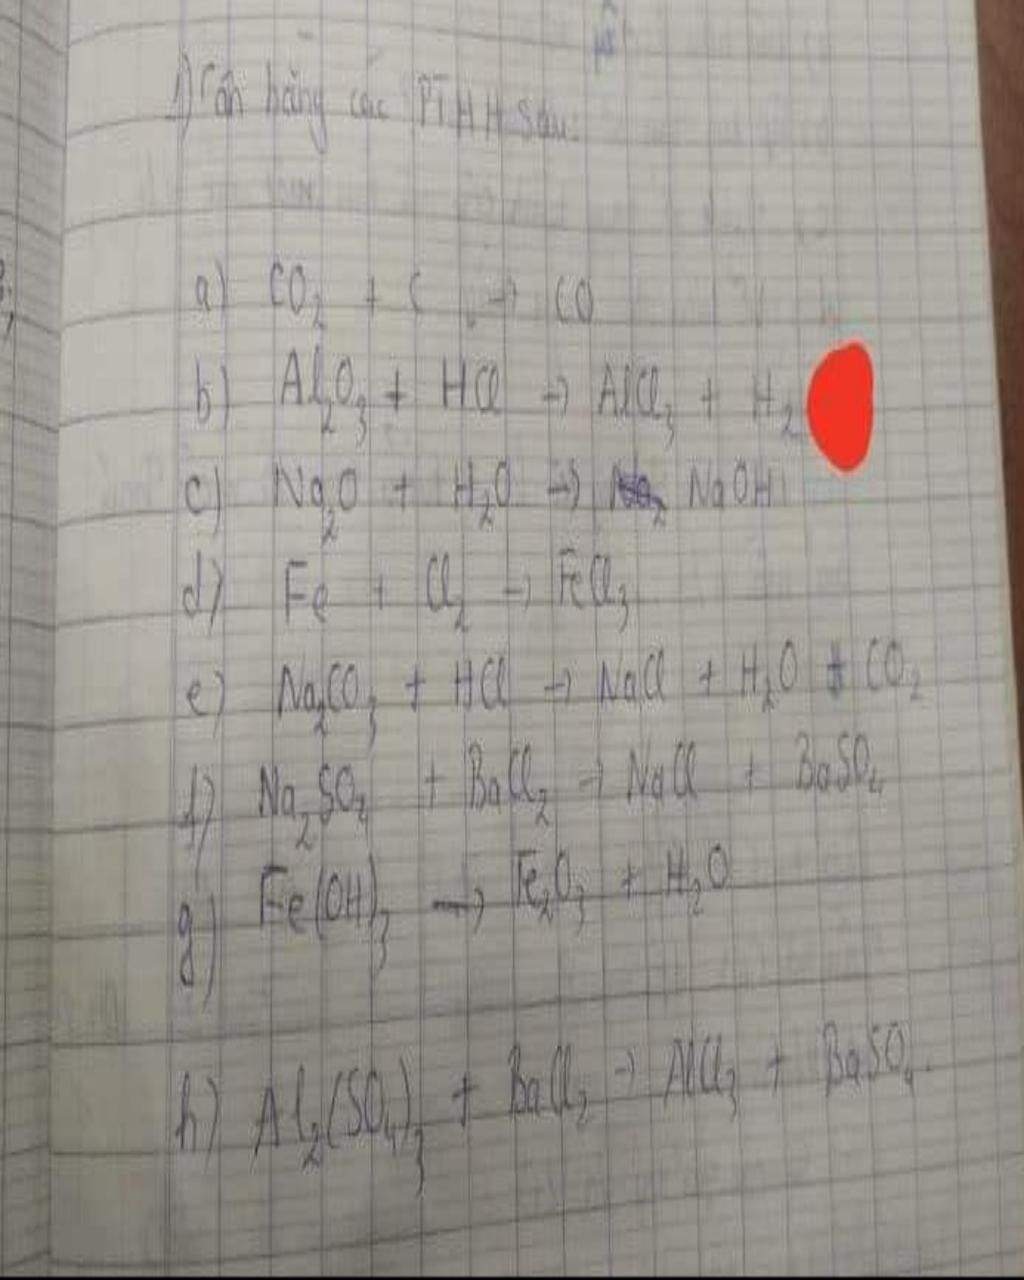 1) Cân bằng các PTHH sau:
a) CO₂ + C → CO
b) Al₂O₃ + HCl → AlCl₃ + H₂
c) Na₂O + H₂O → NaOH
d) Fe + Cl₂ → FeCl₃
e) Na₂CO₃ + HCl → NaCl + H₂O + CO₂
f) Na₂SO₄ + BaCl₂ → NaCl + BaSO₄
g) Fe(OH)₃ → Fe₂O₃ + H₂O
h) Al₂(SO₄)₃ + BaCl₂ → AlCl₃ + BaSO₄.